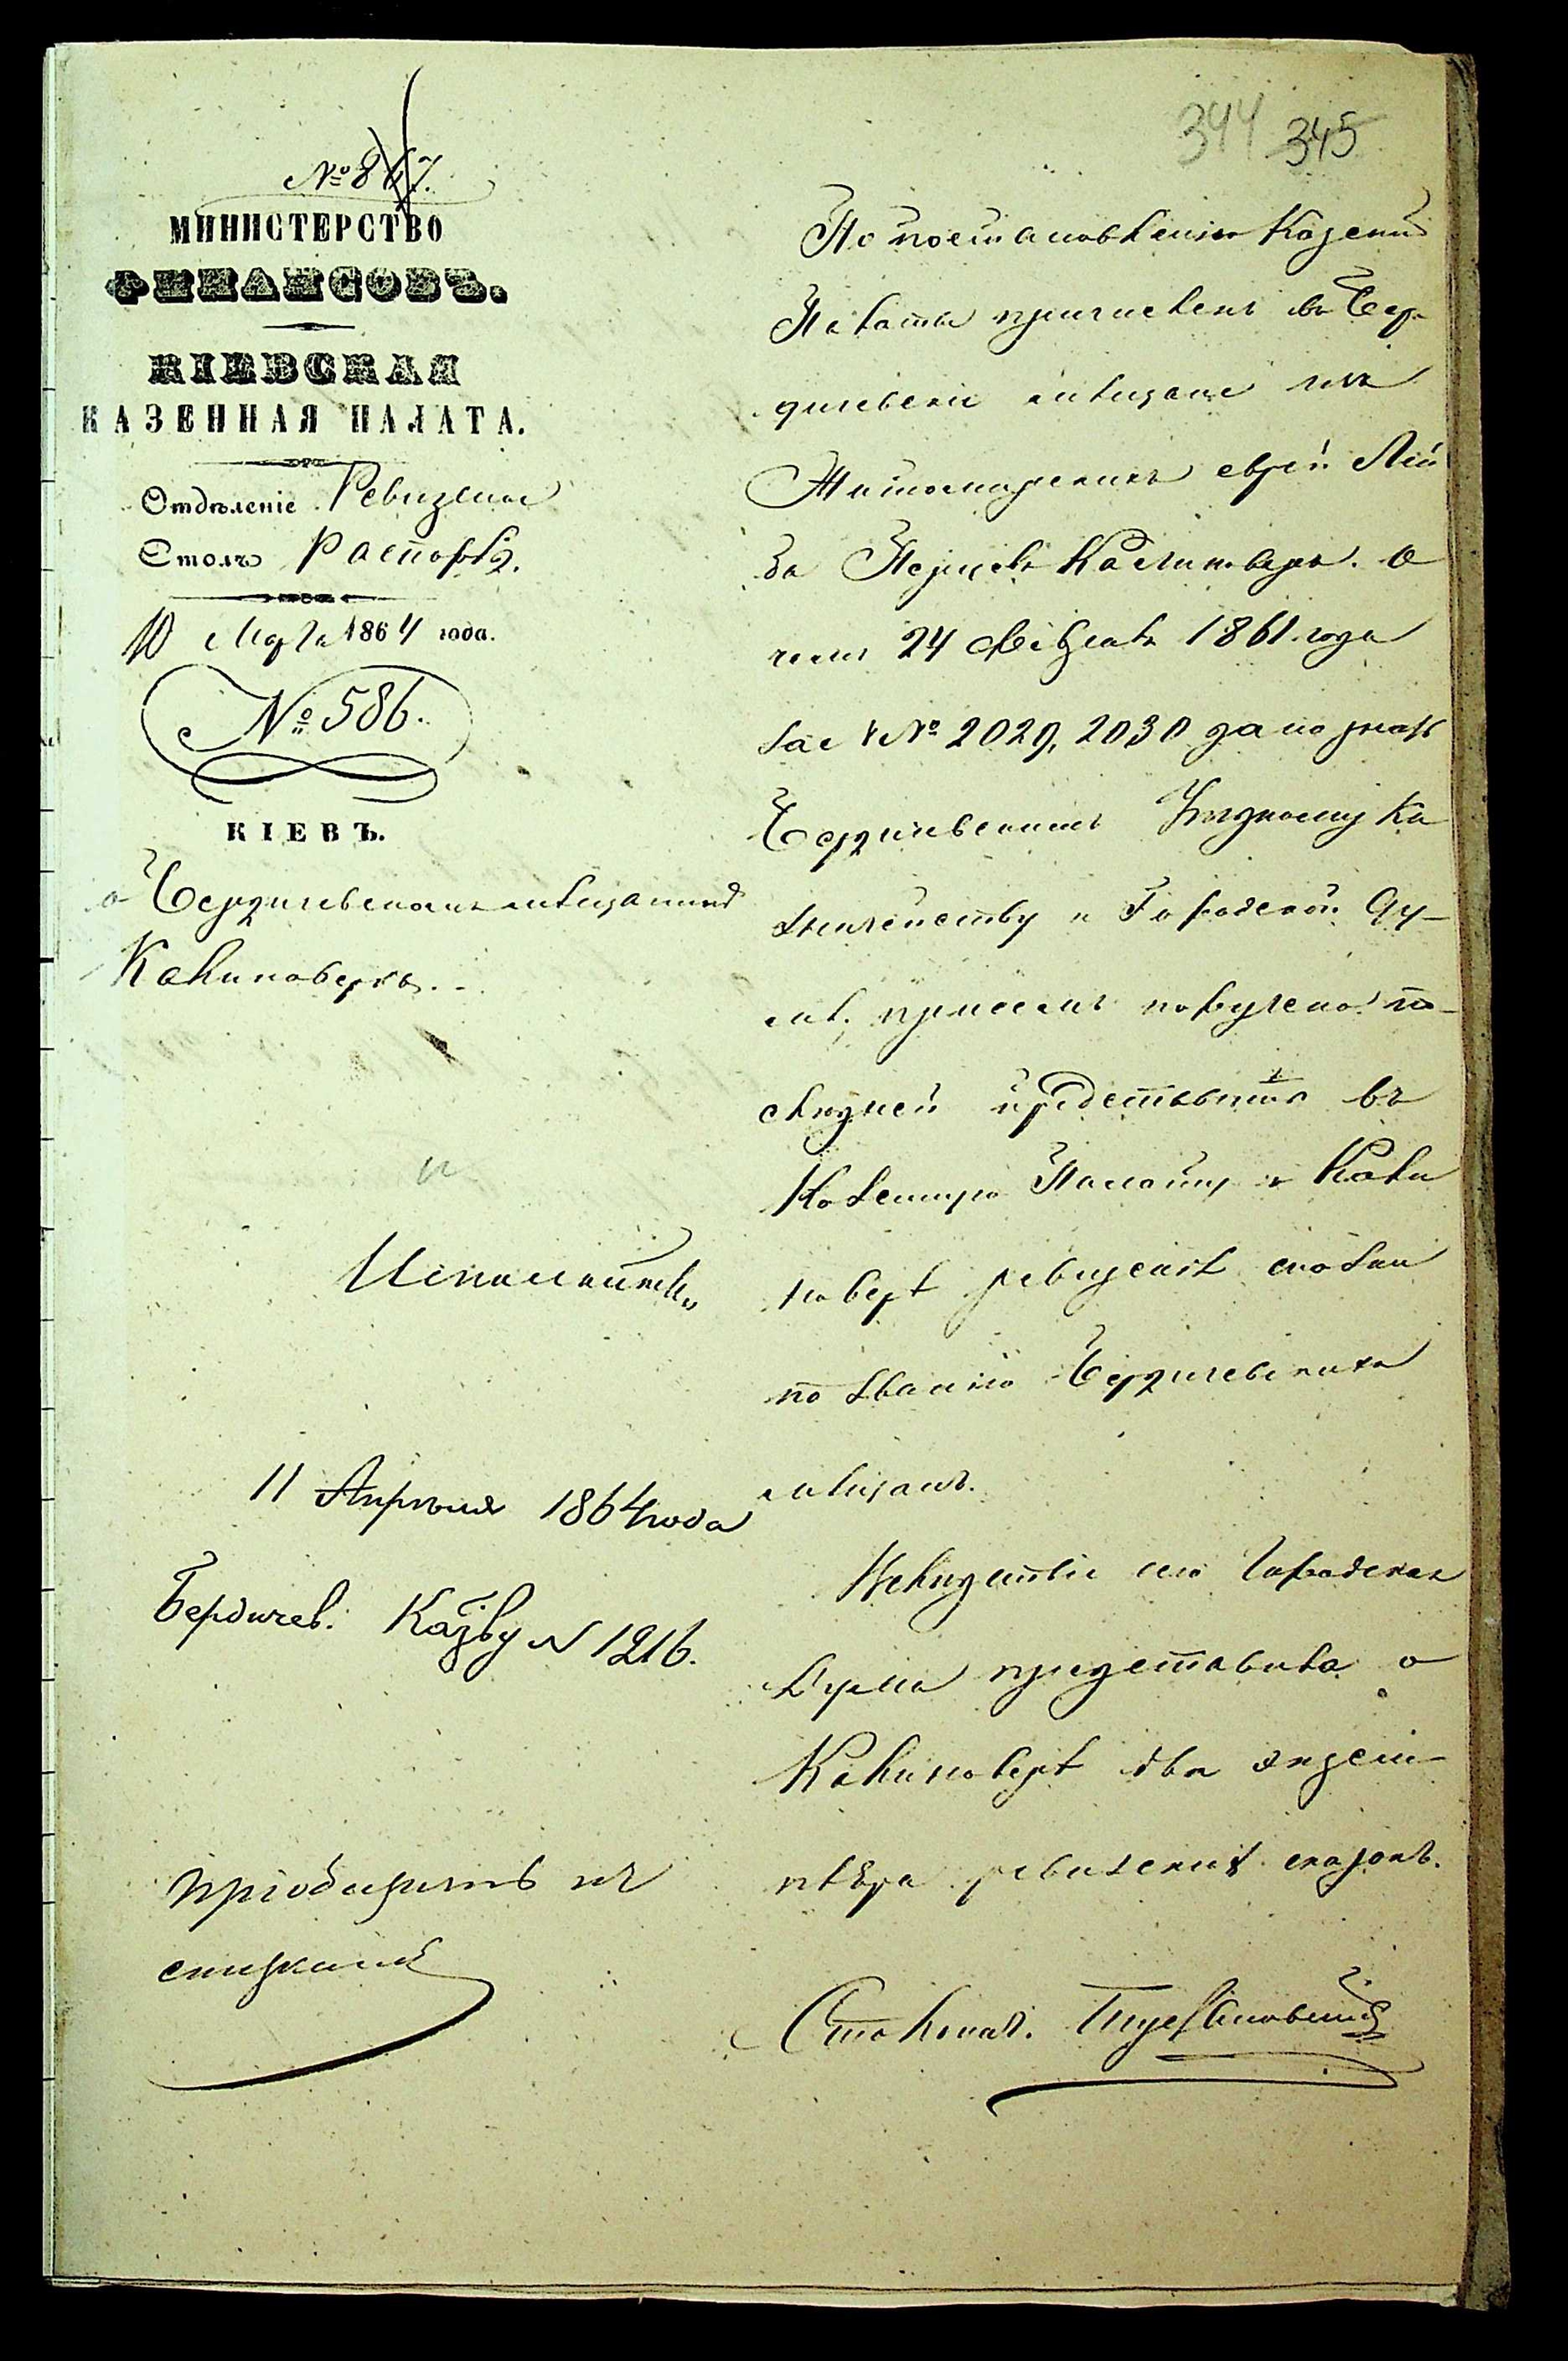 344 345
№ 867.
МИНИСТЕРСТВО
ФИНАНСОВЪ.
КІЕВСКАЯ
КАЗЕННАЯ ПАЛАТА.
Отдѣленіе Ревизское
Столъ
10 Марта 1864 года.
№ 586.
КІЕВЪ.
о Бердичевскомъ мѣщанинѣ
Калиновере.
11 Апрѣля 1864 года
Бердичев. Казву N 1216.
пріобщить къ
По постановленію Казенной
Палаты причисленъ въ Бер-
дичевскіе мѣщане изъ
Житомирскихъ еврей Лей
ба
чемъ 24 1861 года
за № 2029, 2030 дано знать
Бердичевскимъ Уѣздному Ка
значейству и Городской Ду-
мѣ, причемъ поручено по-
слѣдней представить въ
Казенную Палату о Кали
новерѣ ревизскія сказки
по званію Бердичевскихъ
мѣщанъ.
Вслѣдствіе сего Городская
Дума представила о
Калиноверѣ два экзем-
пляра ревизскихъ сказокъ.
Столонач.